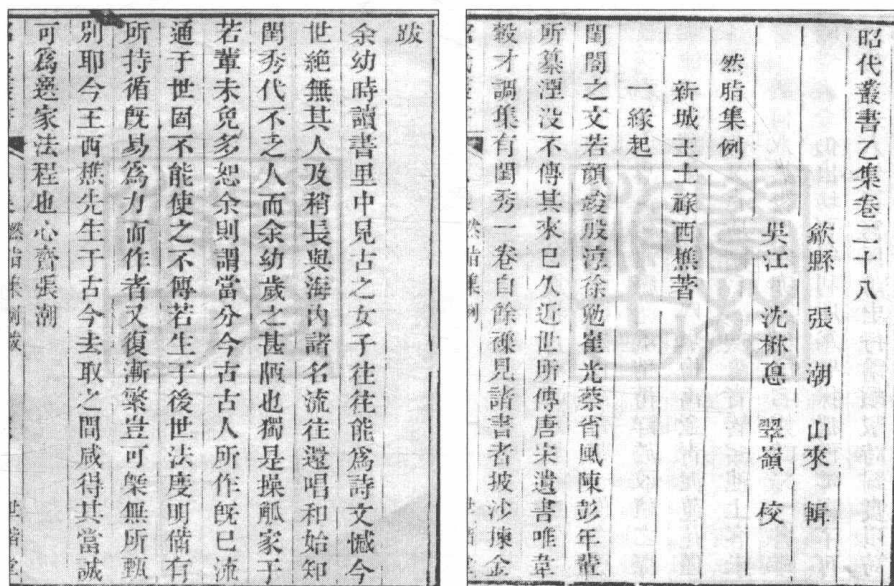 昭代叢書乙集卷二十八
歙縣 張潮 山來 輯
吳江 沈楙悳 翠嶺 校
然脂集例
新城王士祿西樵著
一緣起
閨閤之文若顏竣殷淳徐勉崔光蔡省風陳彭年輩
所纂湮没不傳其來已久近世所傳唐宋遺書唯韋
縠才調集有閨秀一卷自餘礫見諸書者披沙揀金
跋
余幼時讀書里中見古之女子往往能爲詩文憾今
世絶無其人及稍長與海内諸名流往還唱和始知
閨秀代不乏人而余幼歲之甚陋也獨是操觚家于
若輩未免多恕余則謂當分今古古人所作旣已流
通于世固不能使之不傳若生于後世法度明備有
所持循旣易爲力而作者又復漸繁豈可槩無所甄
別耶今王西樵先生于古今去取之間咸得其當誠
可爲選家法程也心齋張潮
然脂集例跋
世楷堂